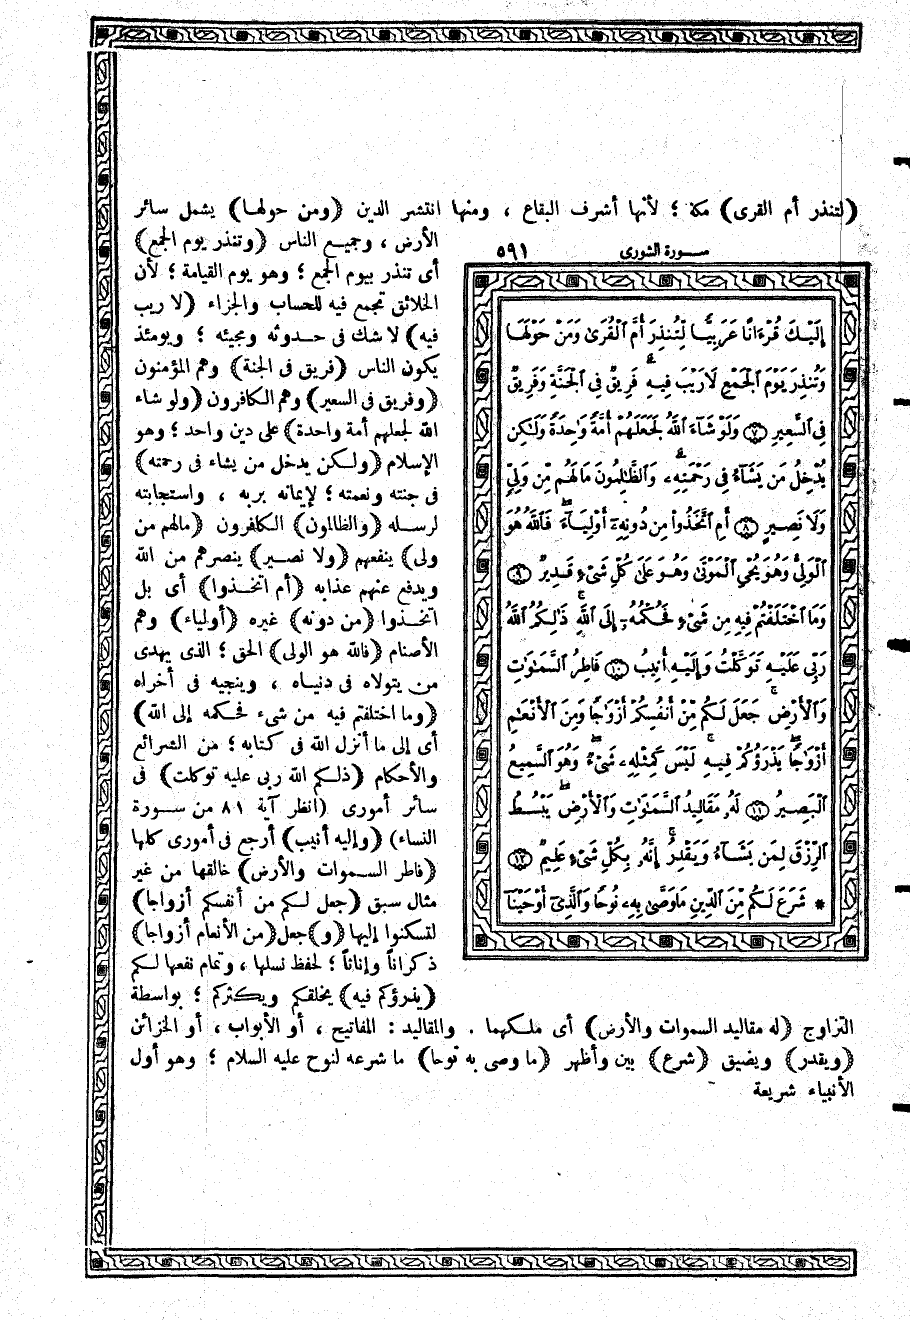 (لتنذر أم القرى) مكة ؛ لأنها أشرف البقاع ، ومنها انتشر الدين (ومن حولها) يشمل سائر
الأرض ، وجميع الناس (وتنذر يوم الجمع)
أى تنذر بيوم الجمع ؛ وهو يوم القيامة ؛ لأن
الخلائق تجمع فيه للحساب والجزاء (لا ريب
فيه) لا شك فى حدوثه ومجيئه ؛ ويومئذ
يكون الناس (فريق فى الجنة) وهم المؤمنون
(وفريق فى السعير) وهم الكافرون (ولو شاء
الله لجعلهم أمة واحدة) على دين واحد ؛ وهو
الإسلام (ولكن يدخل من يشاء فى رحمته)
فى جنته ونعمته ؛ لإيمانه بربه ، واستجابته
لرسله (والظالمون) الكافرون (مالهم من
ولى) ينفعهم (ولا نصير) ينصرهم من الله
ويدفع عنهم عذابه (أم اتخذوا) أى بل
اتخذوا (من دونه) غيره (أولياء) وهم
الأصنام (فالله هو الولى) الحق ؛ الذى يهدى
من يتولاه فى دنياه ، وينجيه فى أخراه
(وما اختلفتم فيه من شىء فحكمه إلى الله)
أى إلى ما أنزل الله فى كتابه ؛ من الشرائع
والأحكام (ذلكم الله ربى عليه توكلت) فى
سائر أمورى (انظر آية ٨١ من سورة
النساء) (وإليه أنيب) أرجع فى أمورى كلها
(فاطر السموات والأرض) خالقها من غير
مثال سبق (جعل لكم من أنفسكم أزواجا)
لتسكنوا إليها (و)جعل(من الأنعام أزواجا)
ذكراناً وإناثاً ؛ لحفظ نسلها ، وتمام نفعها لكم
(يذرؤكم فيه) يخلقكم ويكثركم ؛ بواسطة
سورة الشورى ٥٩١
إِلَيْكَ قُرْءَانًا عَرَبِيًّا لِّتُنذِرَ أُمَّ ٱلْقُرَىٰ وَمَنْ حَوْلَهَا
وَتُنذِرَ يَوْمَ ٱلْجَمْعِ لَا رَيْبَ فِيهِ ۚ فَرِيقٌ فِى ٱلْجَنَّةِ وَفَرِيقٌ
فِى ٱلسَّعِيرِ ٧ وَلَوْ شَآءَ ٱللَّهُ لَجَعَلَهُمْ أُمَّةً وَٰحِدَةً وَلَٰكِن
يُدْخِلُ مَن يَشَآءُ فِى رَحْمَتِهِۦ ۚ وَٱلظَّٰلِمُونَ مَا لَهُم مِّن وَلِىٍّ
وَلَا نَصِيرٍ ٨ أَمِ ٱتَّخَذُوا۟ مِن دُونِهِۦٓ أَوْلِيَآءَ ۖ فَٱللَّهُ هُوَ
ٱلْوَلِىُّ وَهُوَ يُحْىِ ٱلْمَوْتَىٰ وَهُوَ عَلَىٰ كُلِّ شَىْءٍ قَدِيرٌ ٩
وَمَا ٱخْتَلَفْتُمْ فِيهِ مِن شَىْءٍ فَحُكْمُهُۥٓ إِلَى ٱللَّهِ ۚ ذَٰلِكُمُ ٱللَّهُ
رَبِّى عَلَيْهِ تَوَكَّلْتُ وَإِلَيْهِ أُنِيبُ ١٠ فَاطِرُ ٱلسَّمَٰوَٰتِ
وَٱلْأَرْضِ ۚ جَعَلَ لَكُم مِّنْ أَنفُسِكُمْ أَزْوَٰجًا وَمِنَ ٱلْأَنْعَٰمِ
أَزْوَٰجًا ۖ يَذْرَؤُكُمْ فِيهِ ۚ لَيْسَ كَمِثْلِهِۦ شَىْءٌ ۖ وَهُوَ ٱلسَّمِيعُ
ٱلْبَصِيرُ ١١ لَهُۥ مَقَالِيدُ ٱلسَّمَٰوَٰتِ وَٱلْأَرْضِ ۖ يَبْسُطُ
ٱلرِّزْقَ لِمَن يَشَآءُ وَيَقْدِرُ ۚ إِنَّهُۥ بِكُلِّ شَىْءٍ عَلِيمٌ ١٢
* شَرَعَ لَكُم مِّنَ ٱلدِّينِ مَا وَصَّىٰ بِهِۦ نُوحًا وَٱلَّذِىٓ أَوْحَيْنَآ
التزاوج (له مقاليد السموات والأرض) أى ملكهما . والمقاليد : المفاتيح ، أو الأبواب ، أو الخزائن
(ويقدر) ويضيق (شرع) بين وأظهر (ما وصى به نوحا) ما شرعه لنوح عليه السلام ؛ وهو أول
الأنبياء شريعة